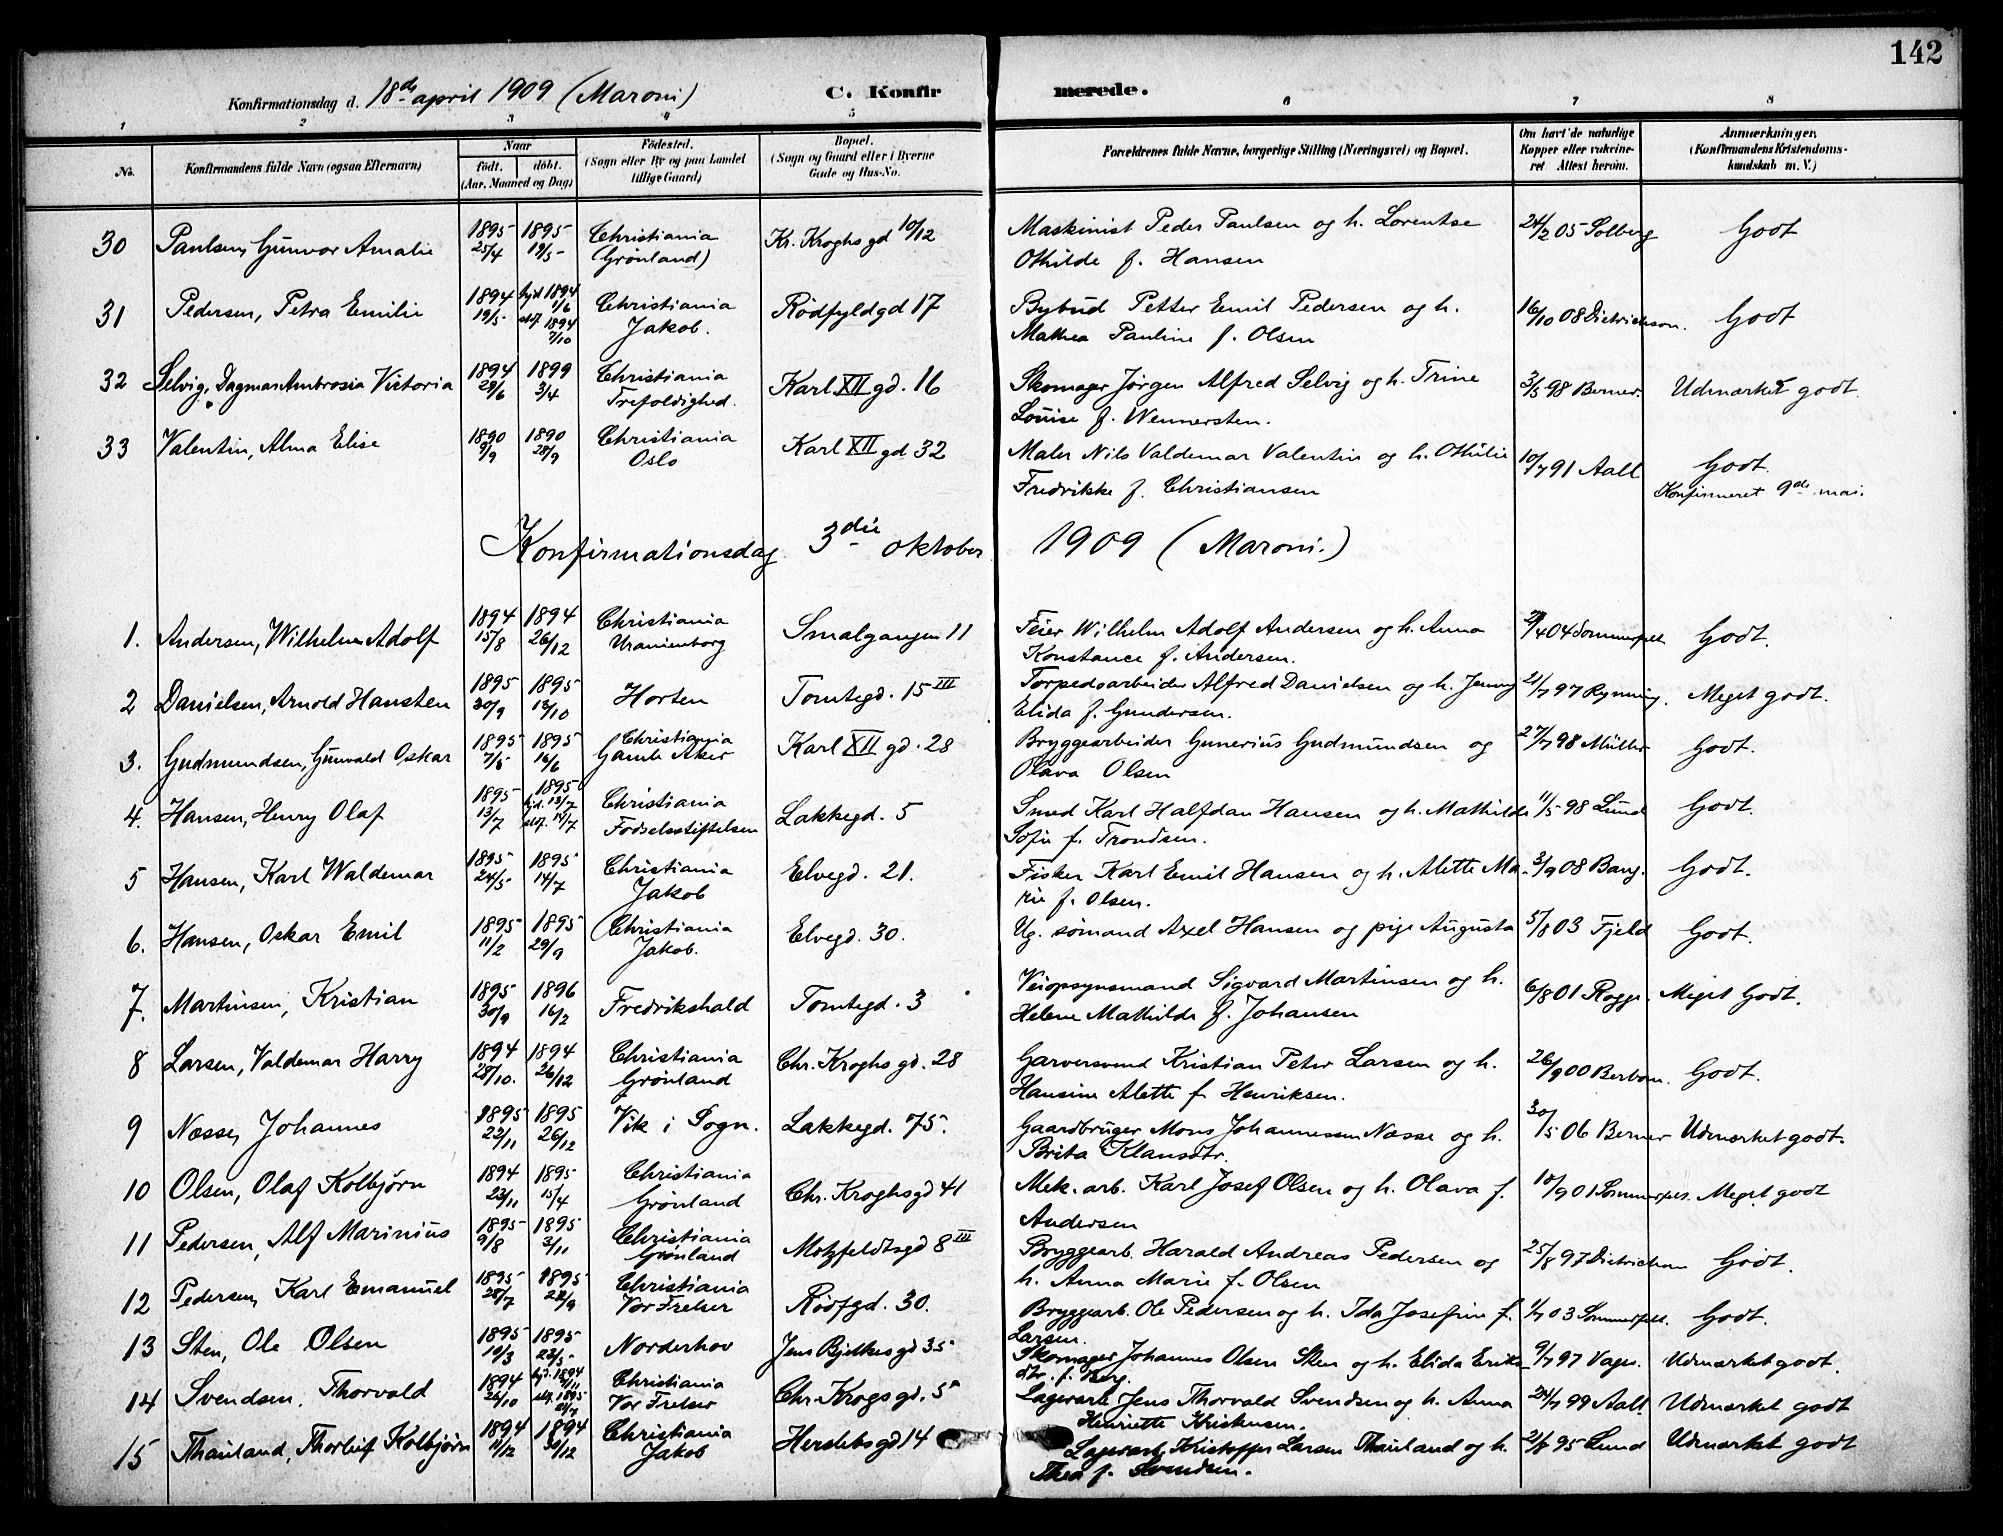 142
Konfirmationsdag d. 18de april 1909 (Maroni) C. Konfirmerede.
1 2 3 4 5 6 7 8
No. Konfirmandens fulde Navn (ogsaa Efternavn) Naar født. døbt. (Aar, Maaned og Dag) Fødested. (Sogn eller By og paa Landet tillige Gaard) Bopæl. (Sogn og Gaard eller i Byerne Gade og Hus-No. Forældrenes fulde Navne, borgerlige Stilling (Næringsvei) og Bopæl. Om havt de naturlige Kopper eller vakcineret Attest herom. Anmærkninger. (Konfirmandens Kristendomskundskab m. V.)
30 Paulsen, Gunvor Amalie 1895 25/4 1895 19/5 Christiania (Grønland) Kr. Kroghsgd 10/12 Maskinist Peder Paulsen og h. Lorentse Othilde f. Hansen 24/2 05 Solberg Godt
31 Pedersen, Petra Emilie 1894 19/5 hjd 1894 1/6 stdf. 1894 7/10 Christiania Jakob. Rødfyldgd 17 Bybud Petter Emil Pedersen og h. Mathea Pauline f. Olsen 16/10 08 Dietrichson. Godt
32 Selvig, Dagmar Ambrosia Victoria 1894 29/6 1899 3/4 Christiania Trefoldighed. Karl XII gd. 16 Skomager Jørgen Alfred Selvig og h. Trine Louise f. Wennersten. 3/5 98 Berner. Udmærket godt.
33 Valentin, Alma Elise 1890 9/9 1890 28/9 Christiania Oslo Karl XII gd 32 Maler Nils Valdemar Valentin og h. Othilie Fredrikke f. Christiansen 10/7 91 Aall Godt. Konfirmeret 9de mai.
Konfirmationsdag 3die oktober 1909 (Maroni.)
1. Andersen, Wilhelm Adolf 1894 15/8 1894 26/12 Christiania Uranienborg Smalgangen 11 Feier Wilhelm Adolf Andersen og h. Anna Konstance f. Andersen. /4 04 Sommerfelt Godt.
2 Danielsen, Arnold Hansten 1895 30/9 1895 13/10 Horten Tomtegd. 15 III Torpedoarbeider Alfred Danielsen og h. Jenny Elida f. Gundersen. 21/7 97 Rynning. Meget godt.
3. Gudmundsen, Gunvald Oskar 1895 7/5 1895 16/6 Christiania Gamle Aker Karl XII gd. 28 Bryggearbeider Gunerius Gudmundsen og Olava Olsen 27/7 98 Müller Godt.
4. Hansen, Henry Olaf 1895 13/7 1895 hjd. 13/7 stdf. 14/7 Christiania Fødselsstiftelsen Lakkegd. 5 Smed Karl Halfdan Hansen og h. Mathilde Sofie f. Trondsen. 11/5 98 Lund Godt.
5 Hansen, Karl Waldemar 1895 24/5 1895 14/7 Christiania Jakob Elvegd. 21. Fisker Karl Emil Hansen og h. Alette Marie f. Olsen. 3/9 08 Bang. Godt.
6. Hansen, Oskar Emil 1895 11/2 1895 29/9 Christiania Jakob. Elvegd. 30. Ug. sømand Axel Hansen og pige Augusta 5/8 03 Fjeld Godt.
7. Martinsen, Kristian 1895 30/9 1896 16/2 Fredrikshald Tomtegd. 3 Veiopsynsmand Sigvard Martinsen og h. Helene Mathilde f. Johansen 6/8 01 Rogge. Meget Godt.
8 Larsen, Valdemar Harry 1894 28/10. 1894 26/12 Christiania Grønland Chr. Kroghs gd. 28 Garversvend Kristian Peter Larsen og h. Hansine Alette f. Henriksen. 26/9 00 Berbom. Godt.
9 Næsse, Johannes 1895 22/11 1895 26/12 Vik i Sogn. Lakkegd. 75. Gaardbruger Mons Johannessen Næsse og h. Brita Klausdtr. 30/5 06 Berner Udmærket godt.
10 Olsen, Olaf Kolbjørn 1894 23/11 1895 15/4 Christiania Grønland Chr. Kroghsgd 41 Mek. arb. Karl Josef Olsen og h. Olava f. Andersen 18/9 01 Sommerfelt. Meget godt
11 Pedersen, Alf Marinius 1895 9/8 1895 3/11 Christiania Grønland Motzfeldtsgd 8 III Bryggearb. Harald Andreas Pedersen og h. Anna Marie f. Olsen 25/8 97 Dietrichson Godt.
12 Pedersen, Karl Emanuel 1895 28/7 1895 22/9 Christiania Vor Frelser Rødfgd. 30. Bryggearb. Ole Pedersen og h. Ida Josefine f. Larsen. 1/7 03 Sommerfelt. Godt.
13 Sten, Ole Olsen 1895 10/3 1895 23/5 Norderhov Jens Bjelkesgd 35 Skomager Johannes Olsen Sten og h. Elida Eriksdtr. f. Berg. 9/7 97 Vages. Udmærket godt.
14 Svendsen, Thorvald 1894 26/10 hjd. 1894 /11 stdf. 1895 21/7 Christiania Vor Frelser Chr. Krogs gd. 5 Lagerarb. Jens Thorvald Svendsen og h. Anna Henriette Kristensen. 24/7 99 Aall. Udmærket godt
15 Thauland, Thorleif Kolbjørn 1894 11/12 1894 30/12 Christiania Jakob Herslebsgd 14 Lagerarb. Kristoffer Larsen Thauland og h. Thea f. Svendsen. 2/8 95 Lund Udmærket godt